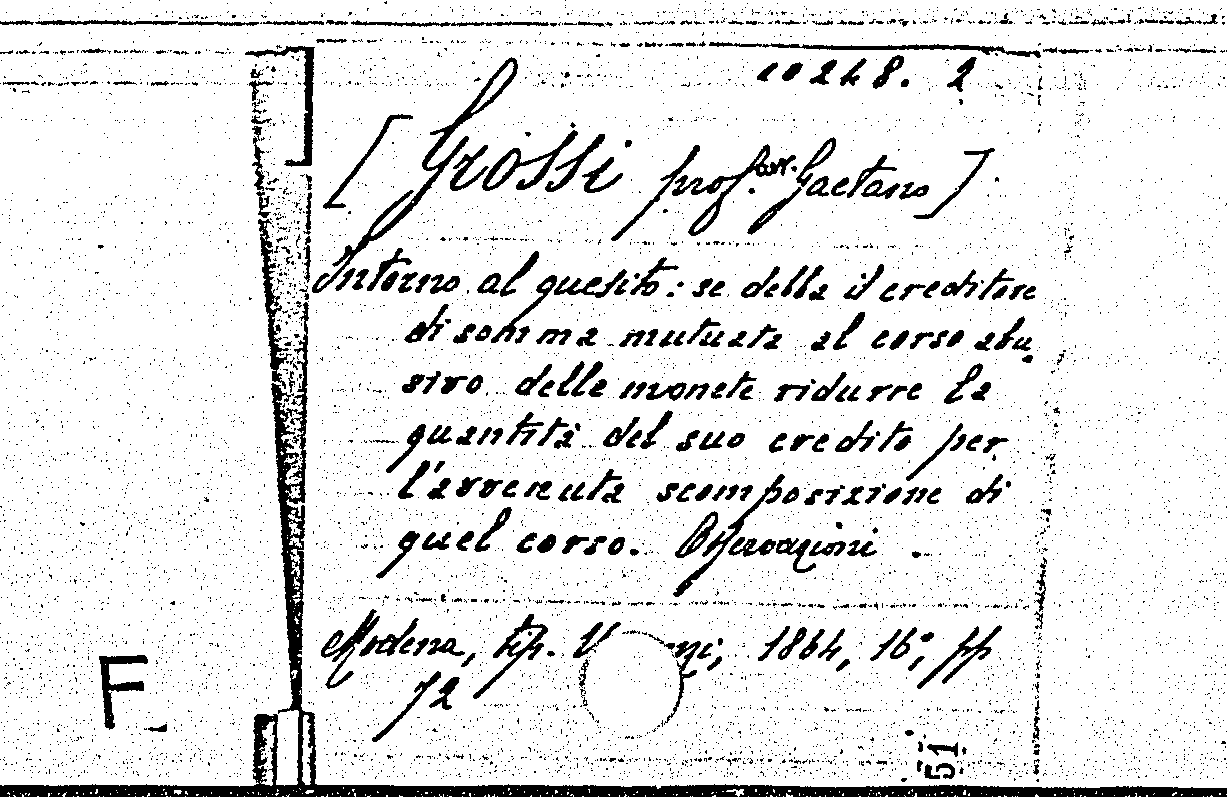 10248. 2
[Grossi prof. avv. Gaetano]
Intorno al quesito: se debba il creditore
di somma mutuata al corso abu-
sivo delle monete ridurre la
quantità del suo credito per
l'avvenuta scomposizione di
quel corso. Osservazioni.
Modena, tip. 1864, 16°, pp
72
F
51